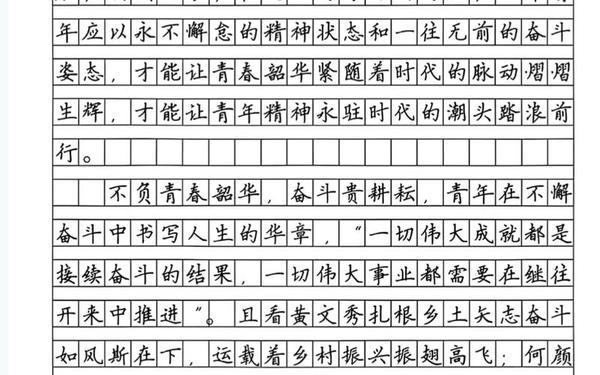 年应以永不懈怠的精神状态和一往无前的奋斗
姿态，才能让青春韶华紧随着时代的脉动熠熠
生辉，才能让青年精神永驻时代的潮头踏浪前
行。
不负青春韶华，奋斗贵耕耘，青年在不懈
奋斗中书写人生的华章，“一切伟大成就都是
接续奋斗的结果，一切伟大事业都需要在继往
开来中推进”。且看黄文秀扎根乡土矢志奋斗
如风斯在下，运载着乡村振兴振翅高飞；何颜